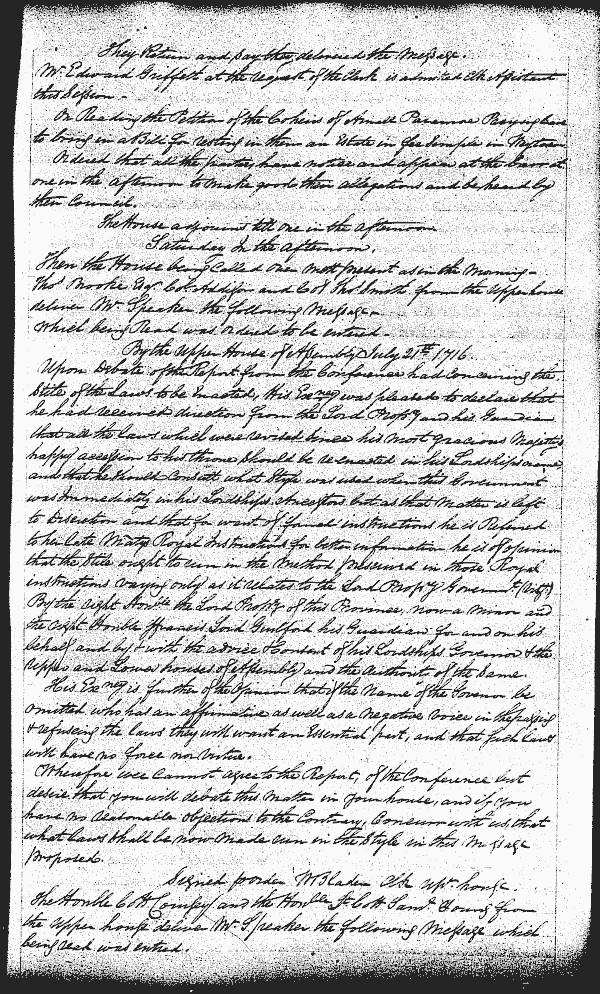 They Return and say they delivered the Message.
Mr. Edward Griffith at the request of the Clerk is admitted Clk Assistant
this Session -
On Reading the Petition of the Coheirs of Paramore Praying leave
to bring in a Bill for vesting in them an Estate in Fee Simple in
Ordered that all the partys have notice and appear at the Barr at
one in the afternoon to make good their allegations and be heard by
their Council.
The House adjourns till one in the afternoon
Saturday In the afternoon.
Then the House being Called over most present as in the Morning -
Thos Brooke Esqr Col. Addison and Col Thos Smith from the Upper house
deliver Mr. Speaker the following Message -
which being Read was ordered to be entered.
By the Upper House of Assembly July 21st 1716.
Upon Debate of the Report from the Conference had Concerning the
Stile of the Laws to be Enacted, His Exncy was pleased to declare that
he had received direction from the Lord Propry and his Guardian
that all the Laws which were revised since his most Gracious Majestys
happy accession to his throne should be reenacted in his Lordships name
and that he should Consult what Style was used when this Government
was Immediately in his Lordships Ancestors but as that Matter is left
to Discretion and that for want of formal instructions he is Referred
to her Late Matys Royal Instructions for better information he is of opinion
that the Stile ought to run in the Method prescribed in those Royal
instructions varying only as it relates to the Lord Propry Governmt (Vizt)
By the right Honble the Lord Propry of this Province, now a minor and
the right Honble Francis Lord Guilford his Guardian for and on his
behalf and by & with the advice & Consent of his Lordships Governor & the
Upper and Lower houses of Assembly and the Authority of the Same.
His Exncy is further of the Opinion that if the Name of the Govenor be
omitted who has an affirmative as well as a Negative voice in the passing
& refuseing the laws they will want an Essential part, and that such Laws
will have no force nor Virtue.
Wherefore wee Cannot agree to the Report, of the Conference but
desire that you will debate this matter in your house, and if you
have no reasonable objections to the Contrary, Concurr with us, that
what laws shall be now made run in the Style in this Message
proposed.
Signed p order W Bladen Clk upr house.
The Honble Coll and the Honble Lt. Coll Saml Young from
the Upper house deliver Mr. Speaker the following Message which
being read was entred.